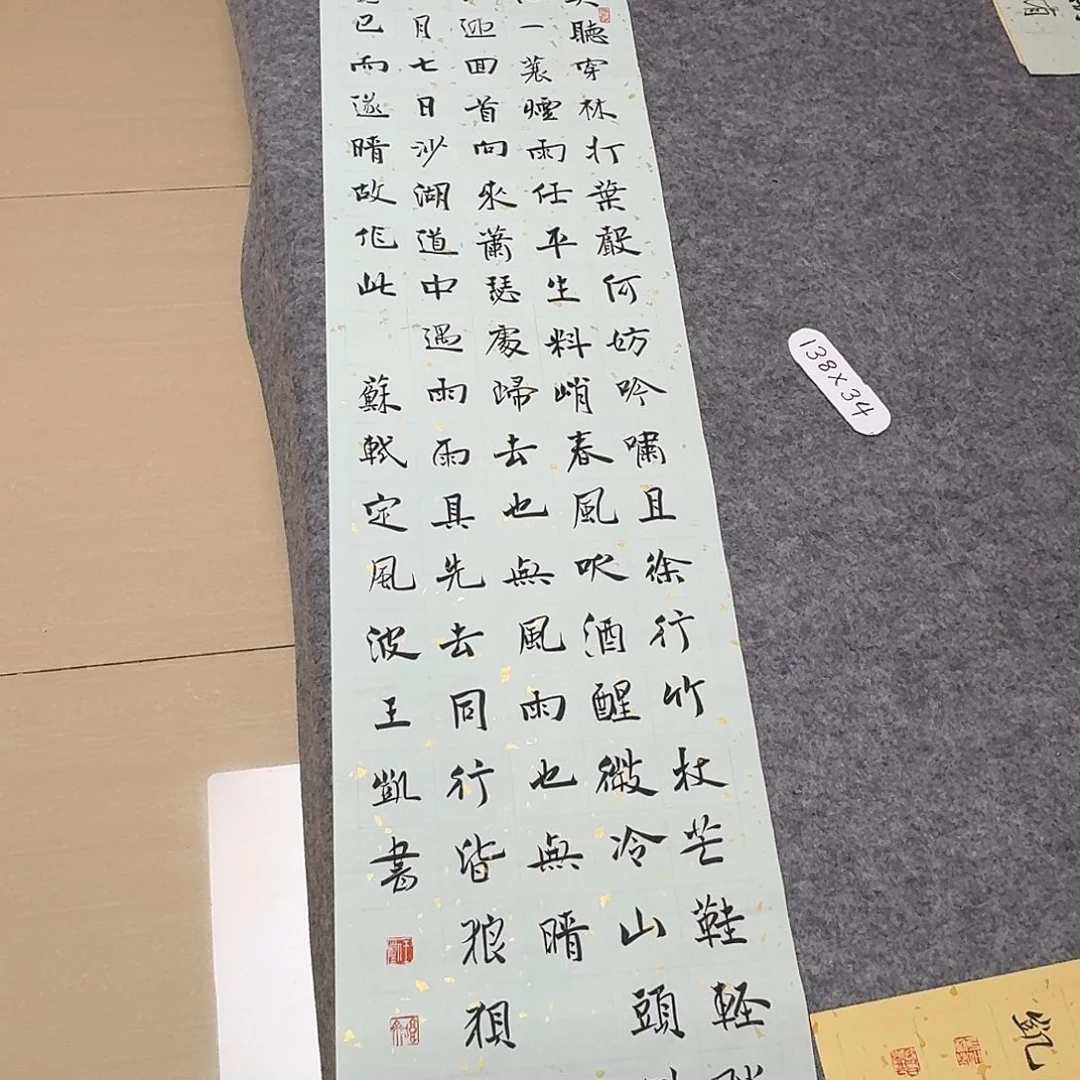 聽穿林打葉聲何妨吟嘯且徐行竹杖芒鞋輕
一蓑煙雨任平生料峭春風吹酒醒微冷山頭
迎回首向來蕭瑟處歸去也無風雨也無晴
月七日沙湖道中遇雨雨具先去同行皆狼狽
已而遂晴故作此 蘇軾定風波王凱書
138×34
凱